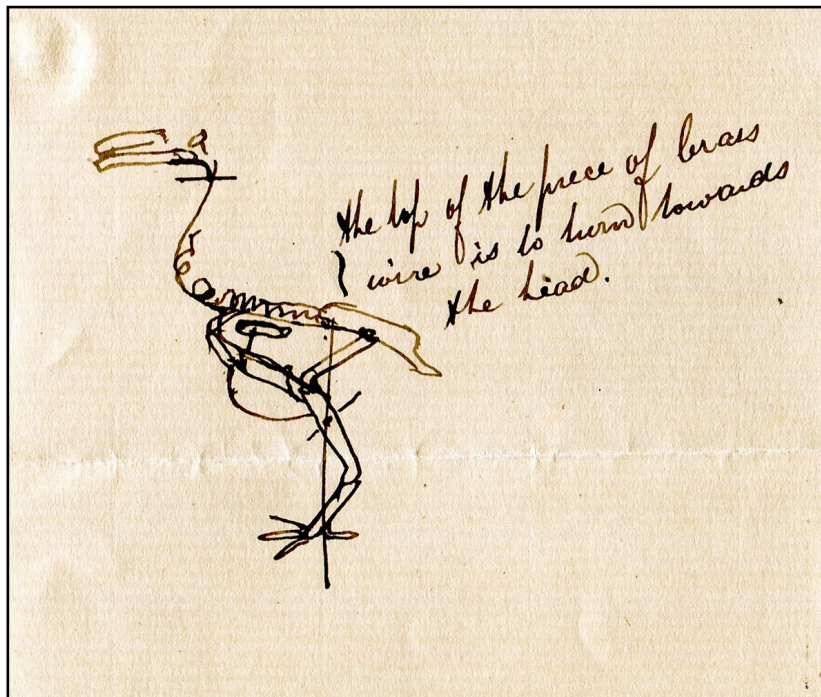 the top of the piece of brass
wire is to turn towards
the head.